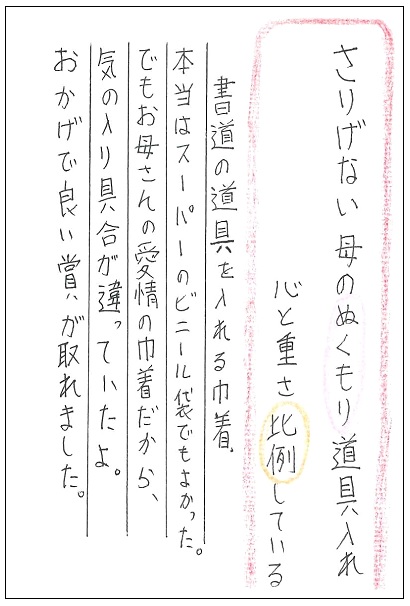 さりげない 母のぬくもり 道具入れ
心と重さ比例している
書道の道具を入れる巾着。
本当はスーパーのビニール袋でもよかった。
でもお母さんの愛情の巾着だから、
気の入り具合が違っていたよ。
おかげで良い賞が取れました。